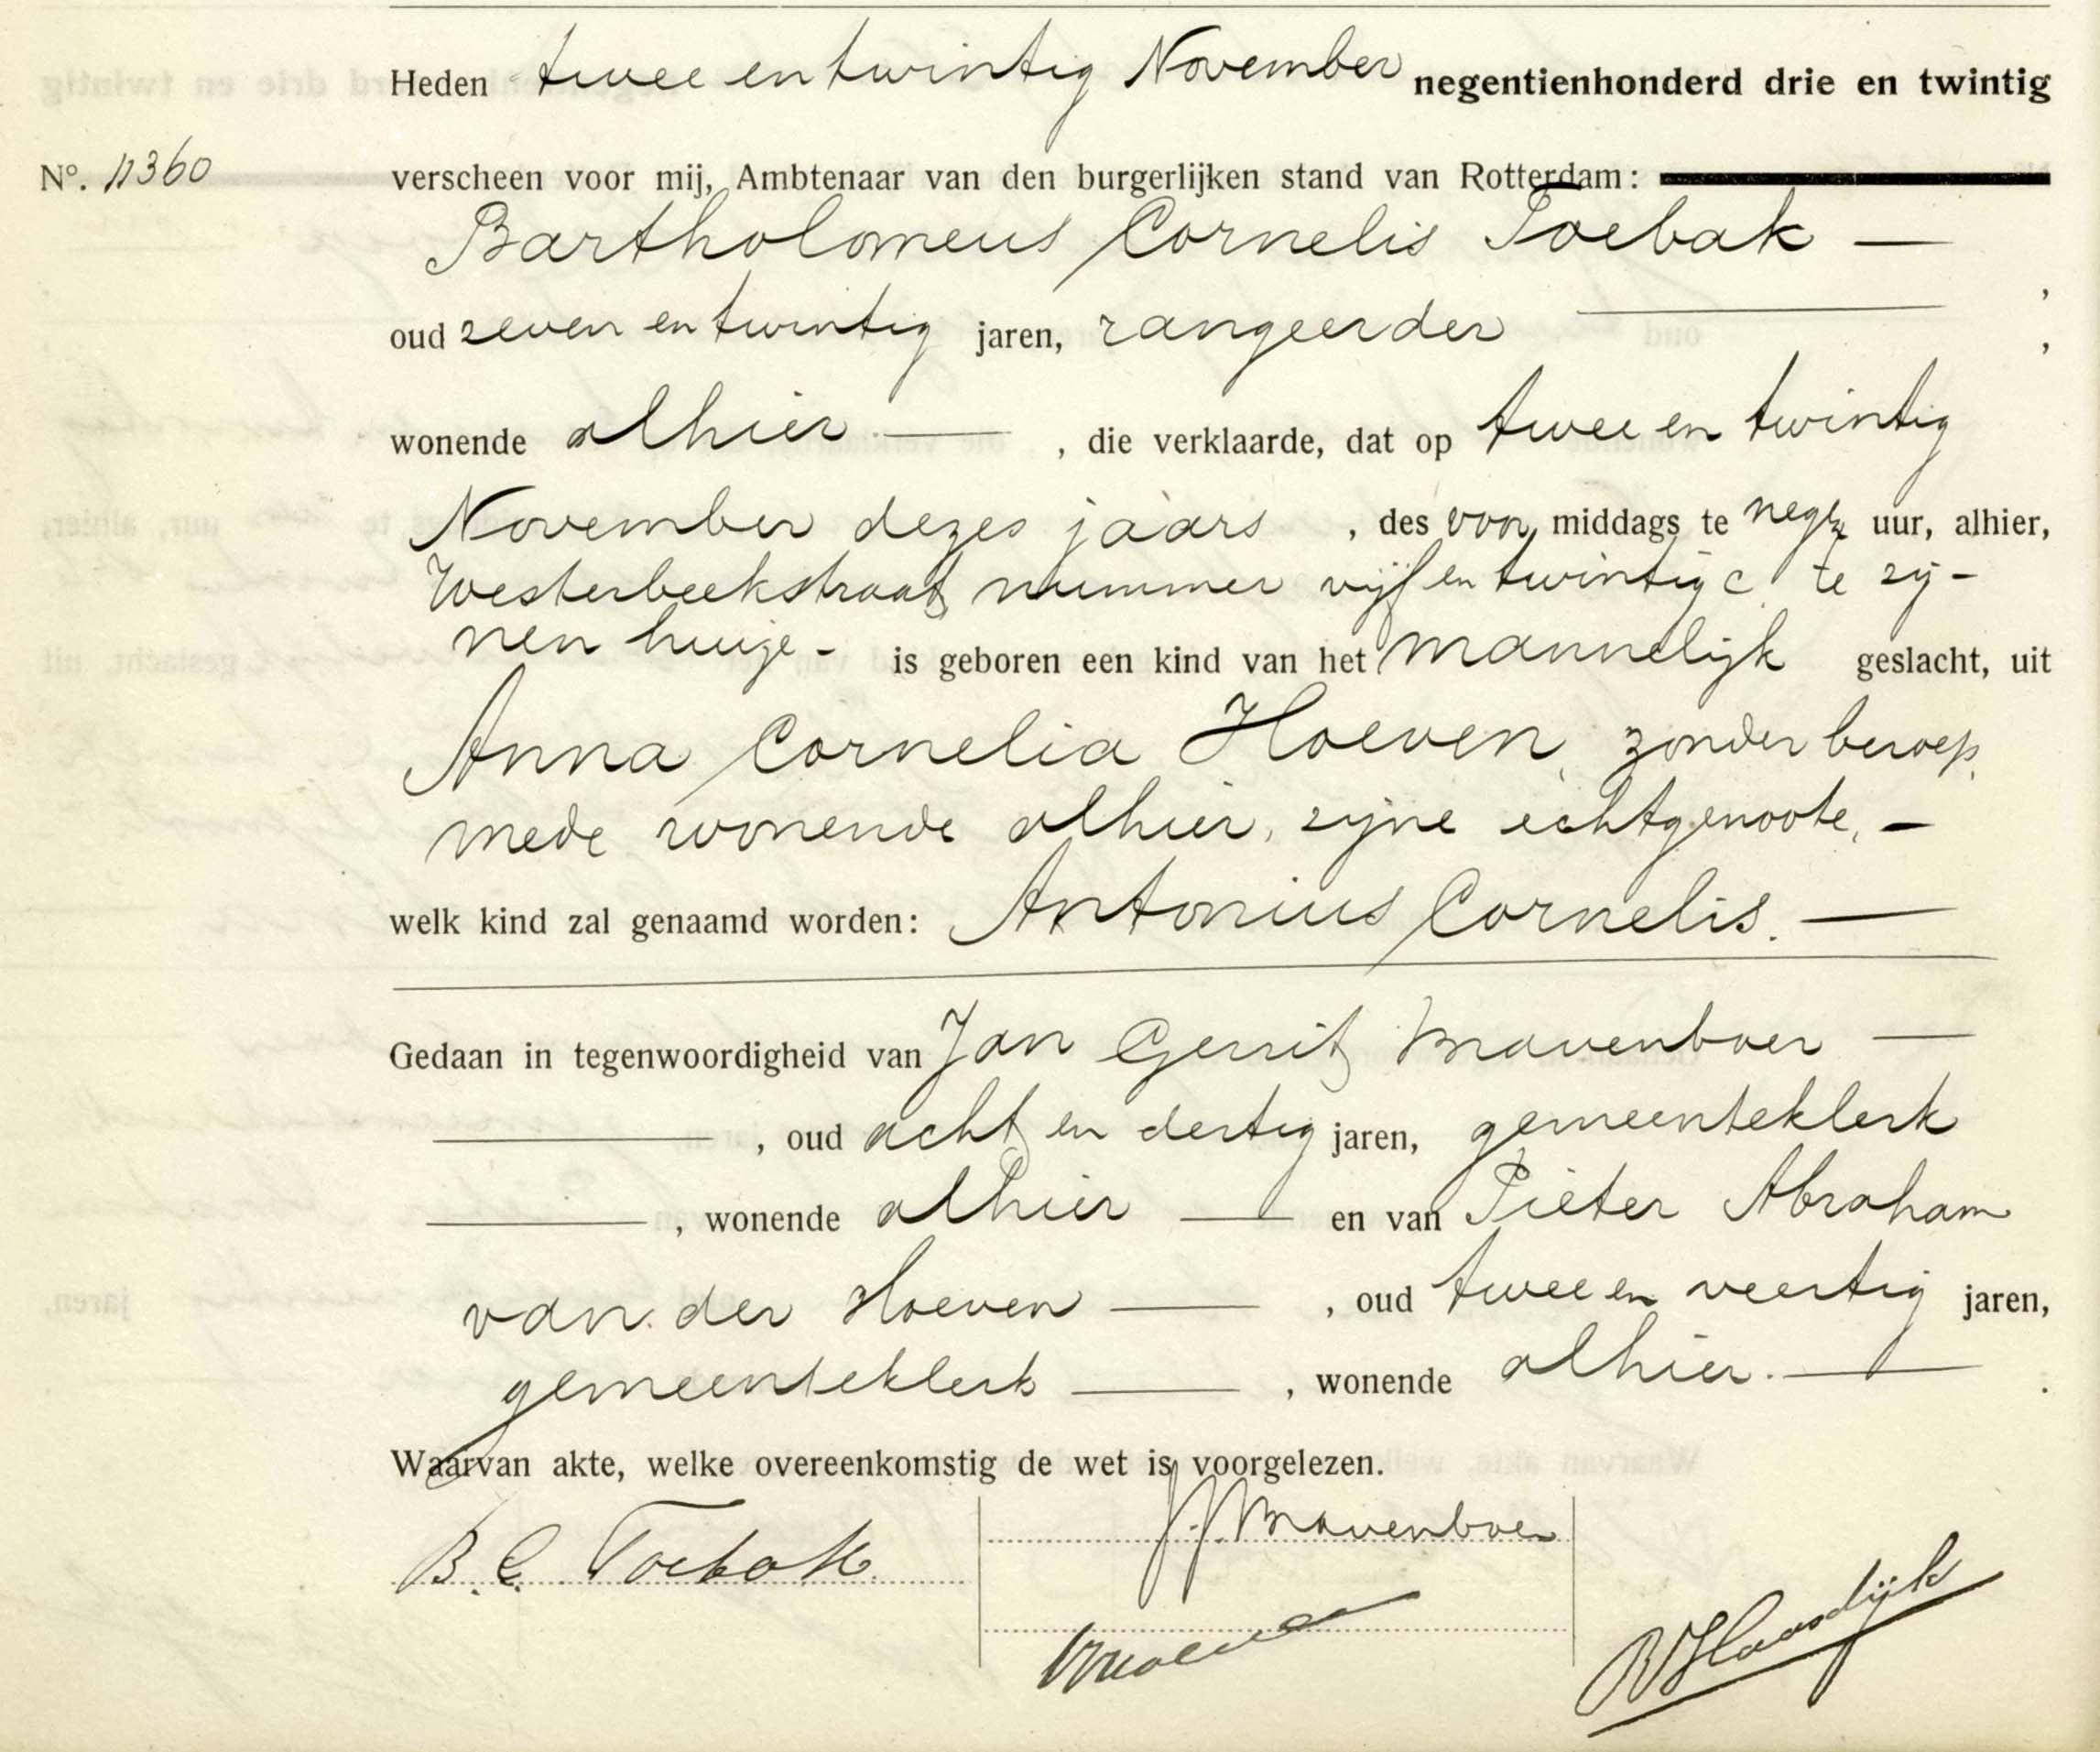 Heden twee en twintig November negentienhonderd drie en twintig
Nº. 11360 verscheen voor mij, Ambtenaar van den burgerlijken stand van Rotterdam:
Bartholomeus Cornelis Toebak —
oud zeven en twintig jaren, rangeerder — ,
wonende alhier — , die verklaarde, dat op twee en twintig
November dezes jaars , des voor middags te negen uur, alhier,
Westerbeekstraat nummer vijf en twintig c te zij-
nen huize - is geboren een kind van het mannelijk geslacht, uit
Anna Cornelia Hoeven, zonder beroep,
mede wonende alhier, zijne echtgenoote, —
welk kind zal genaamd worden: Antonius Cornelis. —
Gedaan in tegenwoordigheid van Jan Gerrit Mavenboer —
— , oud acht en dertig jaren, gemeenteklerk
— , wonende alhier — en van Pieter Abraham
van der Hoeven — , oud twee en veertig jaren,
gemeenteklerk — , wonende alhier. — .
Waarvan akte, welke overeenkomstig de wet is voorgelezen.
B. C. Toebak J.G. Mavenboer